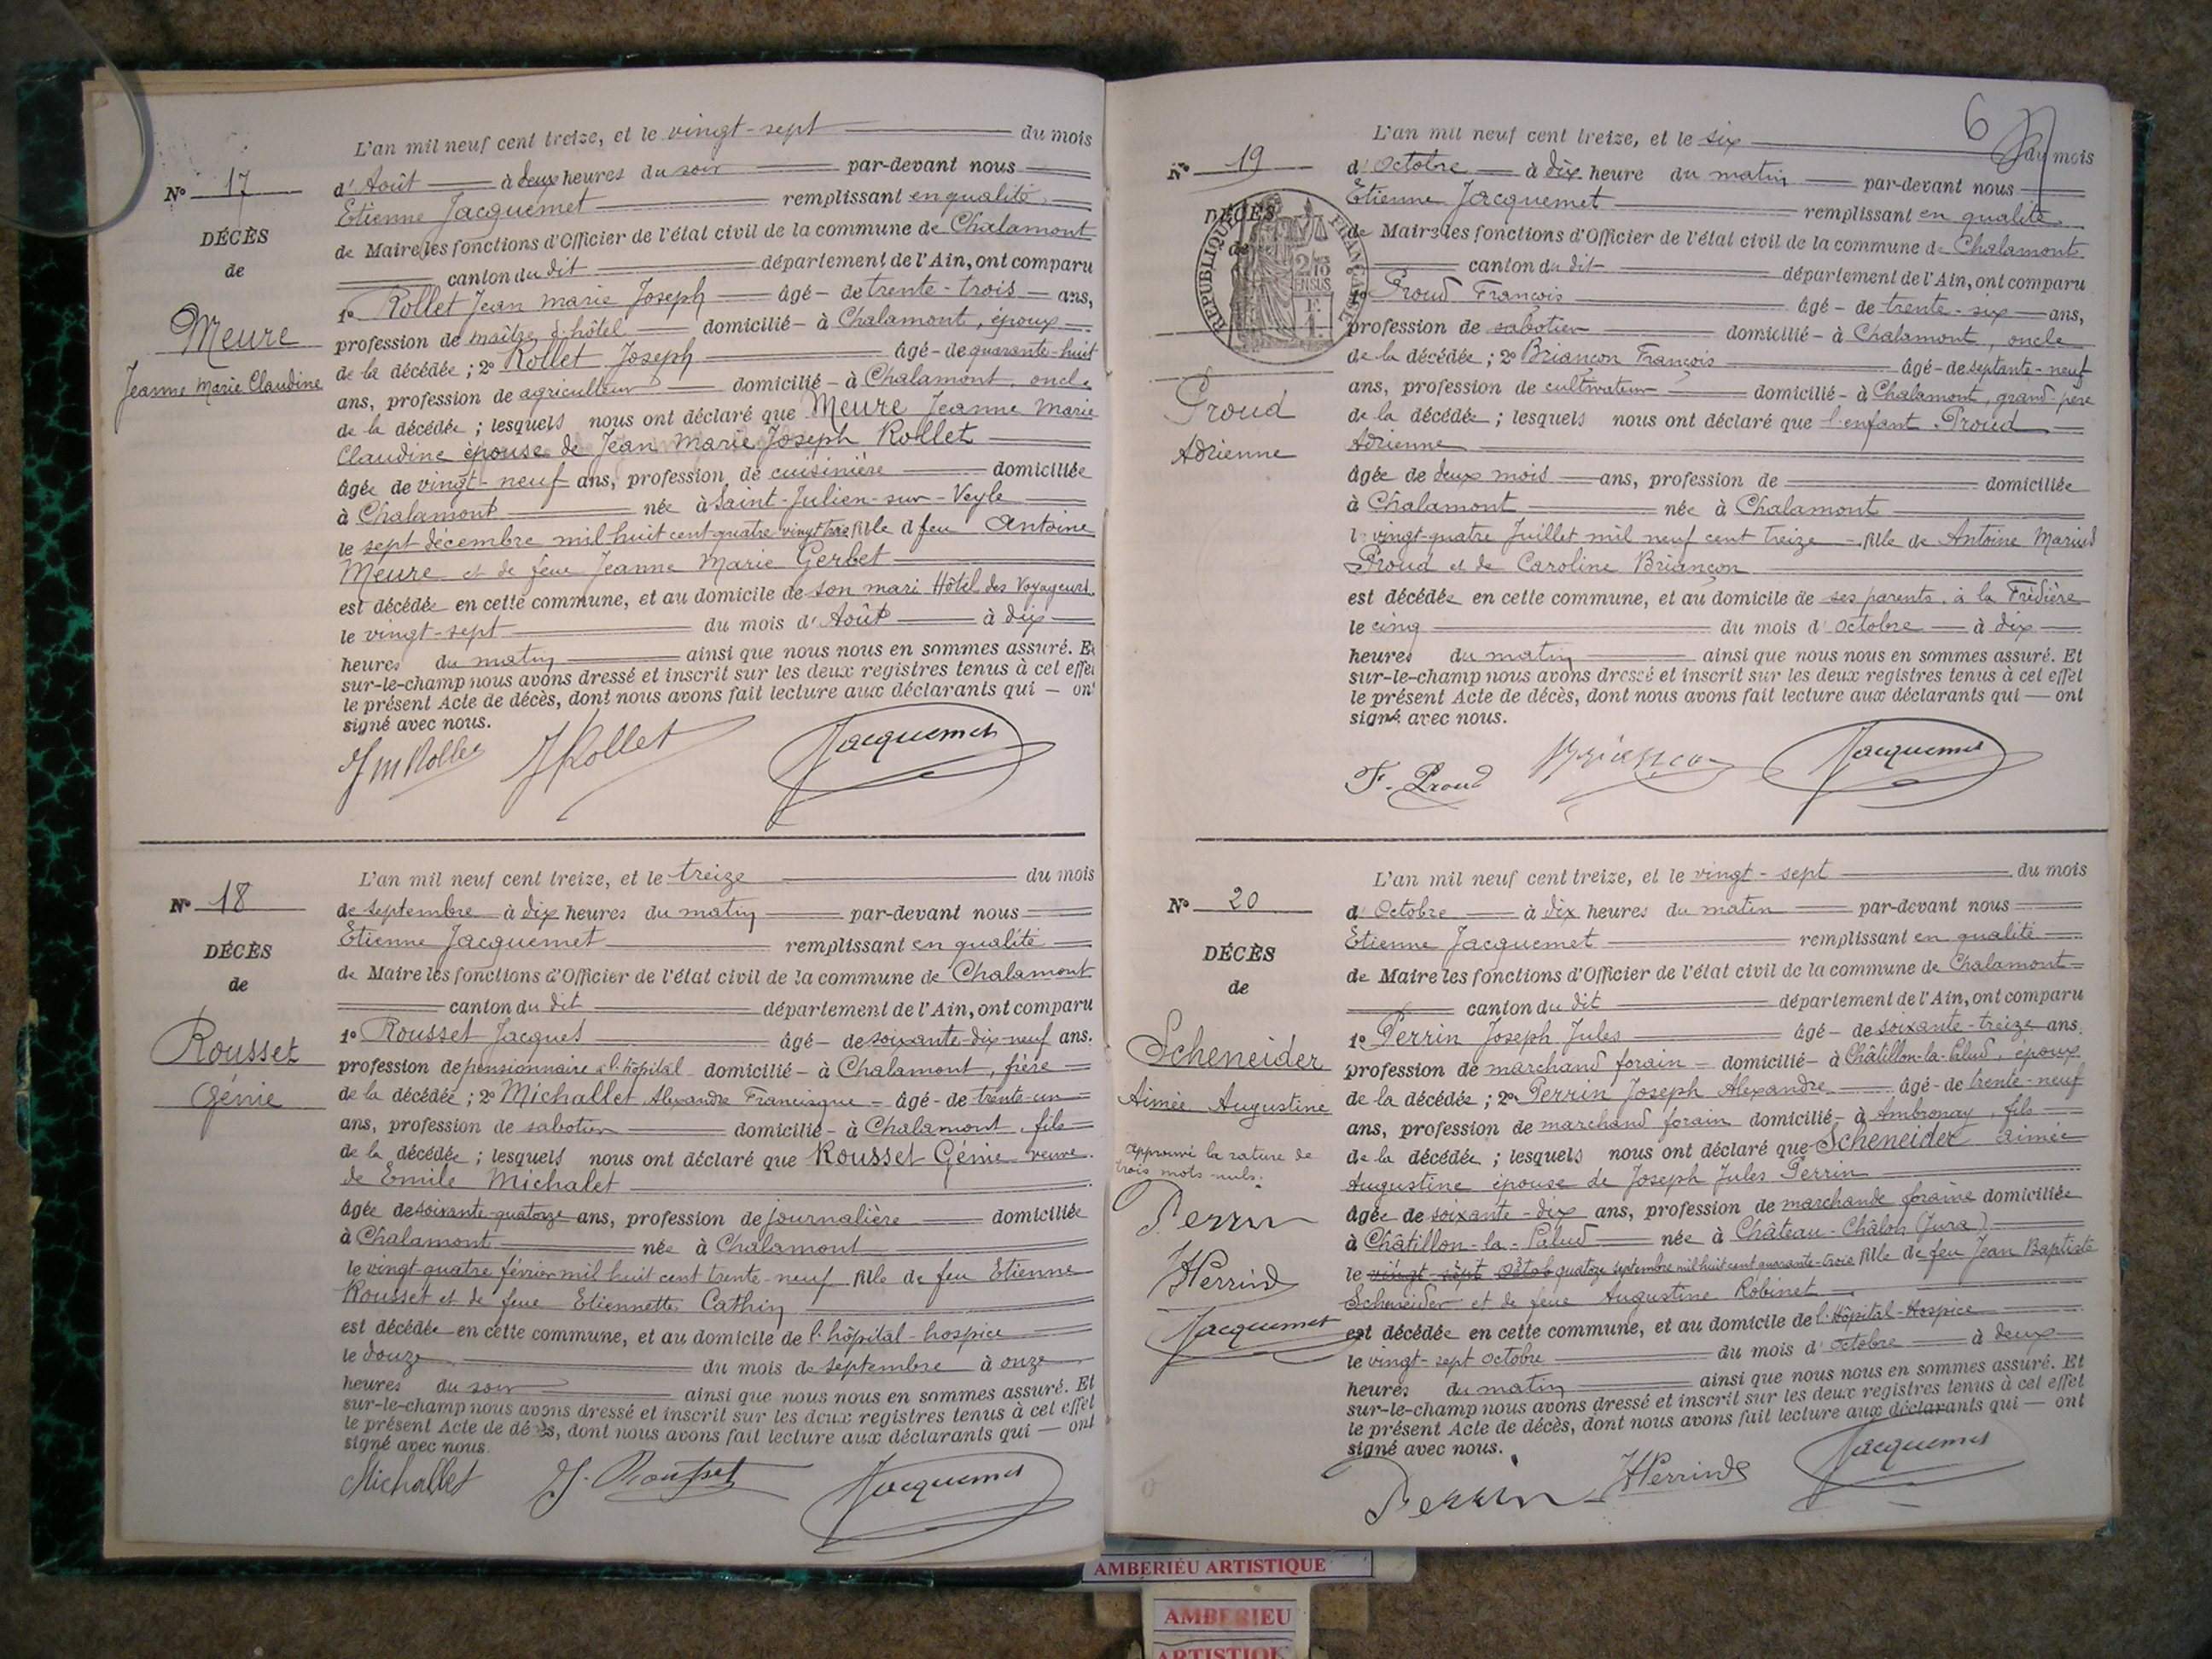 L'an mil neuf cent treize, et le vingt-sept du mois
N° 17
d'Août à deux heures du soir par-devant nous
Etienne Jacquemet remplissant en qualité
DÉCÈS
de Maire les fonctions d'Officier de l'état civil de la commune de Chalamont
de
canton du dit département de l'Ain, ont comparu
1° Rollet Jean Marie Joseph âgé de trente-trois ans,
Meure
profession de maître d'hôtel domicilié à Chalamont, époux
de la décédée ; 2° Rollet Joseph âgé de quarante-huit
Jeanne Marie Claudine
ans, profession de agriculteur domicilié à Chalamont, oncle
de la décédée ; lesquels nous ont déclaré que Meure Jeanne Marie
Claudine épouse de Jean Marie Joseph Rollet
âgée de vingt-neuf ans, profession de cuisinière domiciliée
à Chalamont née à Saint-Julien-sur-Veyle
le sept décembre mil huit cent quatre vingt trois fille d feu Antoine
Meure et de feue Jeanne Marie Gerbet
est décédée en cette commune, et au domicile de son mari Hôtel des Voyageurs
le vingt-sept du mois d'Août à dix
heures du matin ainsi que nous nous en sommes assuré. Et
sur-le-champ nous avons dressé et inscrit sur les deux registres tenus à cet effet
le présent Acte de décès, dont nous avons fait lecture aux déclarants qui — ont
signé avec nous.
JM Rollet J Rollet Jacquemet
L'an mil neuf cent treize, et le treize du mois
N° 18
de septembre à dix heures du matin par-devant nous
Etienne Jacquemet remplissant en qualité
DÉCÈS
de Maire les fonctions d'Officier de l'état civil de la commune de Chalamont
de
canton du dit département de l'Ain, ont comparu
1° Rousset Jacques âgé de soixante-dix-neuf ans.
Rousset
profession de pensionnaire à l'hôpital domicilié à Chalamont, frère
Génie
de la décédée ; 2° Michallet Alexandre Francisque âgé de trente-un
ans, profession de sabotier domicilié à Chalamont, fils
de la décédée ; lesquels nous ont déclaré que Rousset Génie veuve
de Emile Michalet
âgée de soixante-quatorze ans, profession de journalière domiciliée
à Chalamont née à Chalamont
le vingt-quatre février mil huit cent trente-neuf fille de feu Etienne
Rousset et de feue Etiennette Cathin
est décédée en cette commune, et au domicile de l'hôpital-hospice
le douze du mois de septembre à onze
heures du soir ainsi que nous nous en sommes assuré. Et
sur-le-champ nous avons dressé et inscrit sur les deux registres tenus à cet effet
le présent Acte de décès, dont nous avons fait lecture aux déclarants qui — ont
signé avec nous.
Michallet J. Rousset Jacquemet
6
L'an mil neuf cent treize, et le six du mois
N° 19
d'Octobre à dix heure du matin par-devant nous
Etienne Jacquemet remplissant en qualité
DÉCÈS
de Maire les fonctions d'Officier de l'état civil de la commune de Chalamont
de
RÉPUBLIQUE FRANÇAISE
2/10 EN SUS
canton du dit département de l'Ain, ont comparu
1° Proud François âgé de trente-six ans,
profession de sabotier domicilié à Chalamont, oncle
de la décédée ; 2° Briançon François âgé de septante-neuf
ans, profession de cultivateur domicilié à Chalamont, grand-père
Proud
de la décédée ; lesquels nous ont déclaré que l'enfant Proud
Adrienne
Adrienne
âgée de deux mois ans, profession de domiciliée
à Chalamont née à Chalamont
le vingt-quatre Juillet mil neuf cent treize fille de Antoine Marius
Proud et de Caroline Briançon
est décédée en cette commune, et au domicile de ses parents, à la Frédière
le cinq du mois d'octobre à dix
heures du matin ainsi que nous nous en sommes assuré. Et
sur-le-champ nous avons dressé et inscrit sur les deux registres tenus à cet effet
le présent Acte de décès, dont nous avons fait lecture aux déclarants qui — ont
signé avec nous.
F. Proud Briançon Jacquemet
L'an mil neuf cent treize, et le vingt-sept du mois
N° 20
d'Octobre à dix heures du matin par-devant nous
Etienne Jacquemet remplissant en qualité
DÉCÈS
de Maire les fonctions d'Officier de l'état civil de la commune de Chalamont
de
canton du dit département de l'Ain, ont comparu
1° Perrin Joseph Jules âgé de soixante-treize ans.
Scheneider
profession de marchand forain domicilié à Châtillon-la-Palud, époux
Aimée Augustine
de la décédée ; 2° Perrin Joseph Alexandre âgé de trente-neuf
ans, profession de marchand forain domicilié à Ambronay, fils
approuvé la rature de
trois mots nuls.
de la décédée ; lesquels nous ont déclaré que Scheneider aimée
Augustine épouse de Joseph Jules Perrin
Perrin
âgée de soixante-dix ans, profession de marchande foraine domiciliée
à Châtillon-la-Palud née à Château-Châlon (Jura)
JPerrin
le vingt-sept octob quatorze septembre mil huit cent quarante-trois fille de feu Jean Baptiste
Scheneider et de feue Augustine Robinet
Jacquemet
est décédée en cette commune, et au domicile de l'Hôpital-Hospice
le vingt-sept octobre du mois d'octobre à deux
heures du matin ainsi que nous nous en sommes assuré. Et
sur-le-champ nous avons dressé et inscrit sur les deux registres tenus à cet effet
le présent Acte de décès, dont nous avons fait lecture aux déclarants qui — ont
signé avec nous.
Perrin JPerrin Jacquemet
AMBERIEU ARTISTIQUE
AMBERIEU
ARTISTIQUE